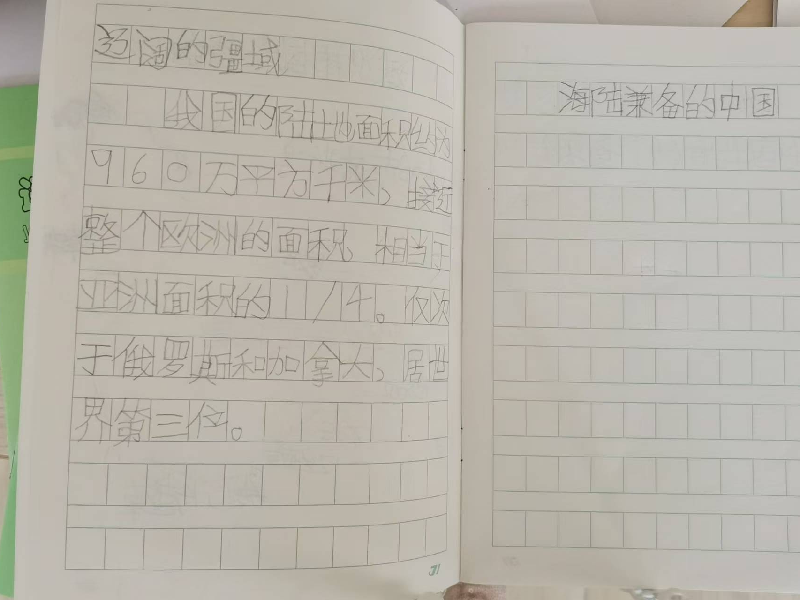 辽阔的疆域
我国的陆地面积约为
960万平方千米，接近
整个欧洲的面积，相当于
亚洲面积的1/4。仅次
于俄罗斯和加拿大，居世
界第三位。
31
海陆兼备的中国